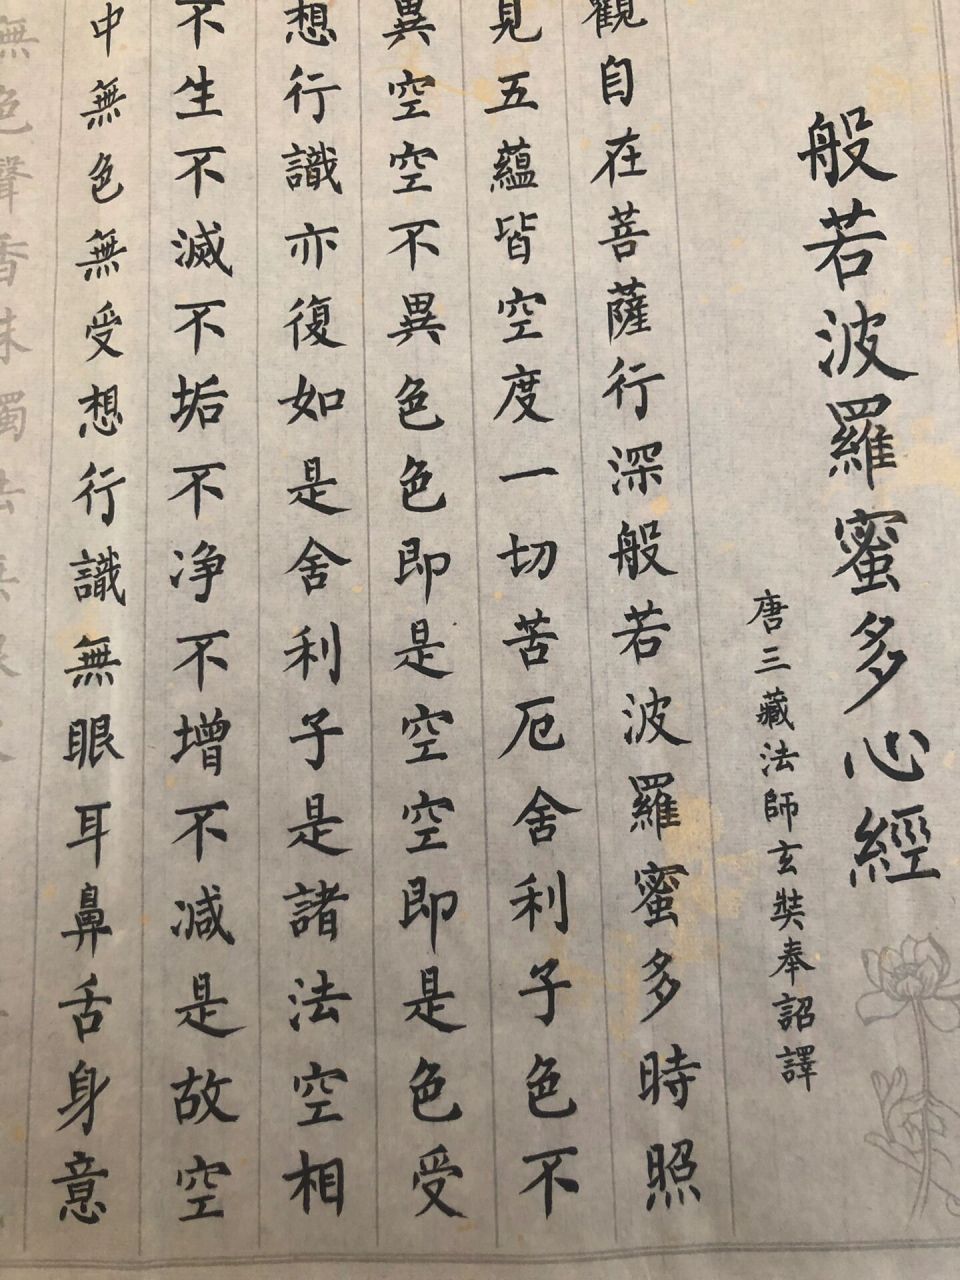 般若波羅蜜多心經
唐三藏法師玄奘奉詔譯
觀自在菩薩行深般若波羅蜜多時照
見五蘊皆空度一切苦厄舍利子色不
異空空不異色色即是空空即是色受
想行識亦復如是舍利子是諸法空相
不生不滅不垢不净不增不減是故空
中無色無受想行識無眼耳鼻舌身意
無色聲香味觸法無眼